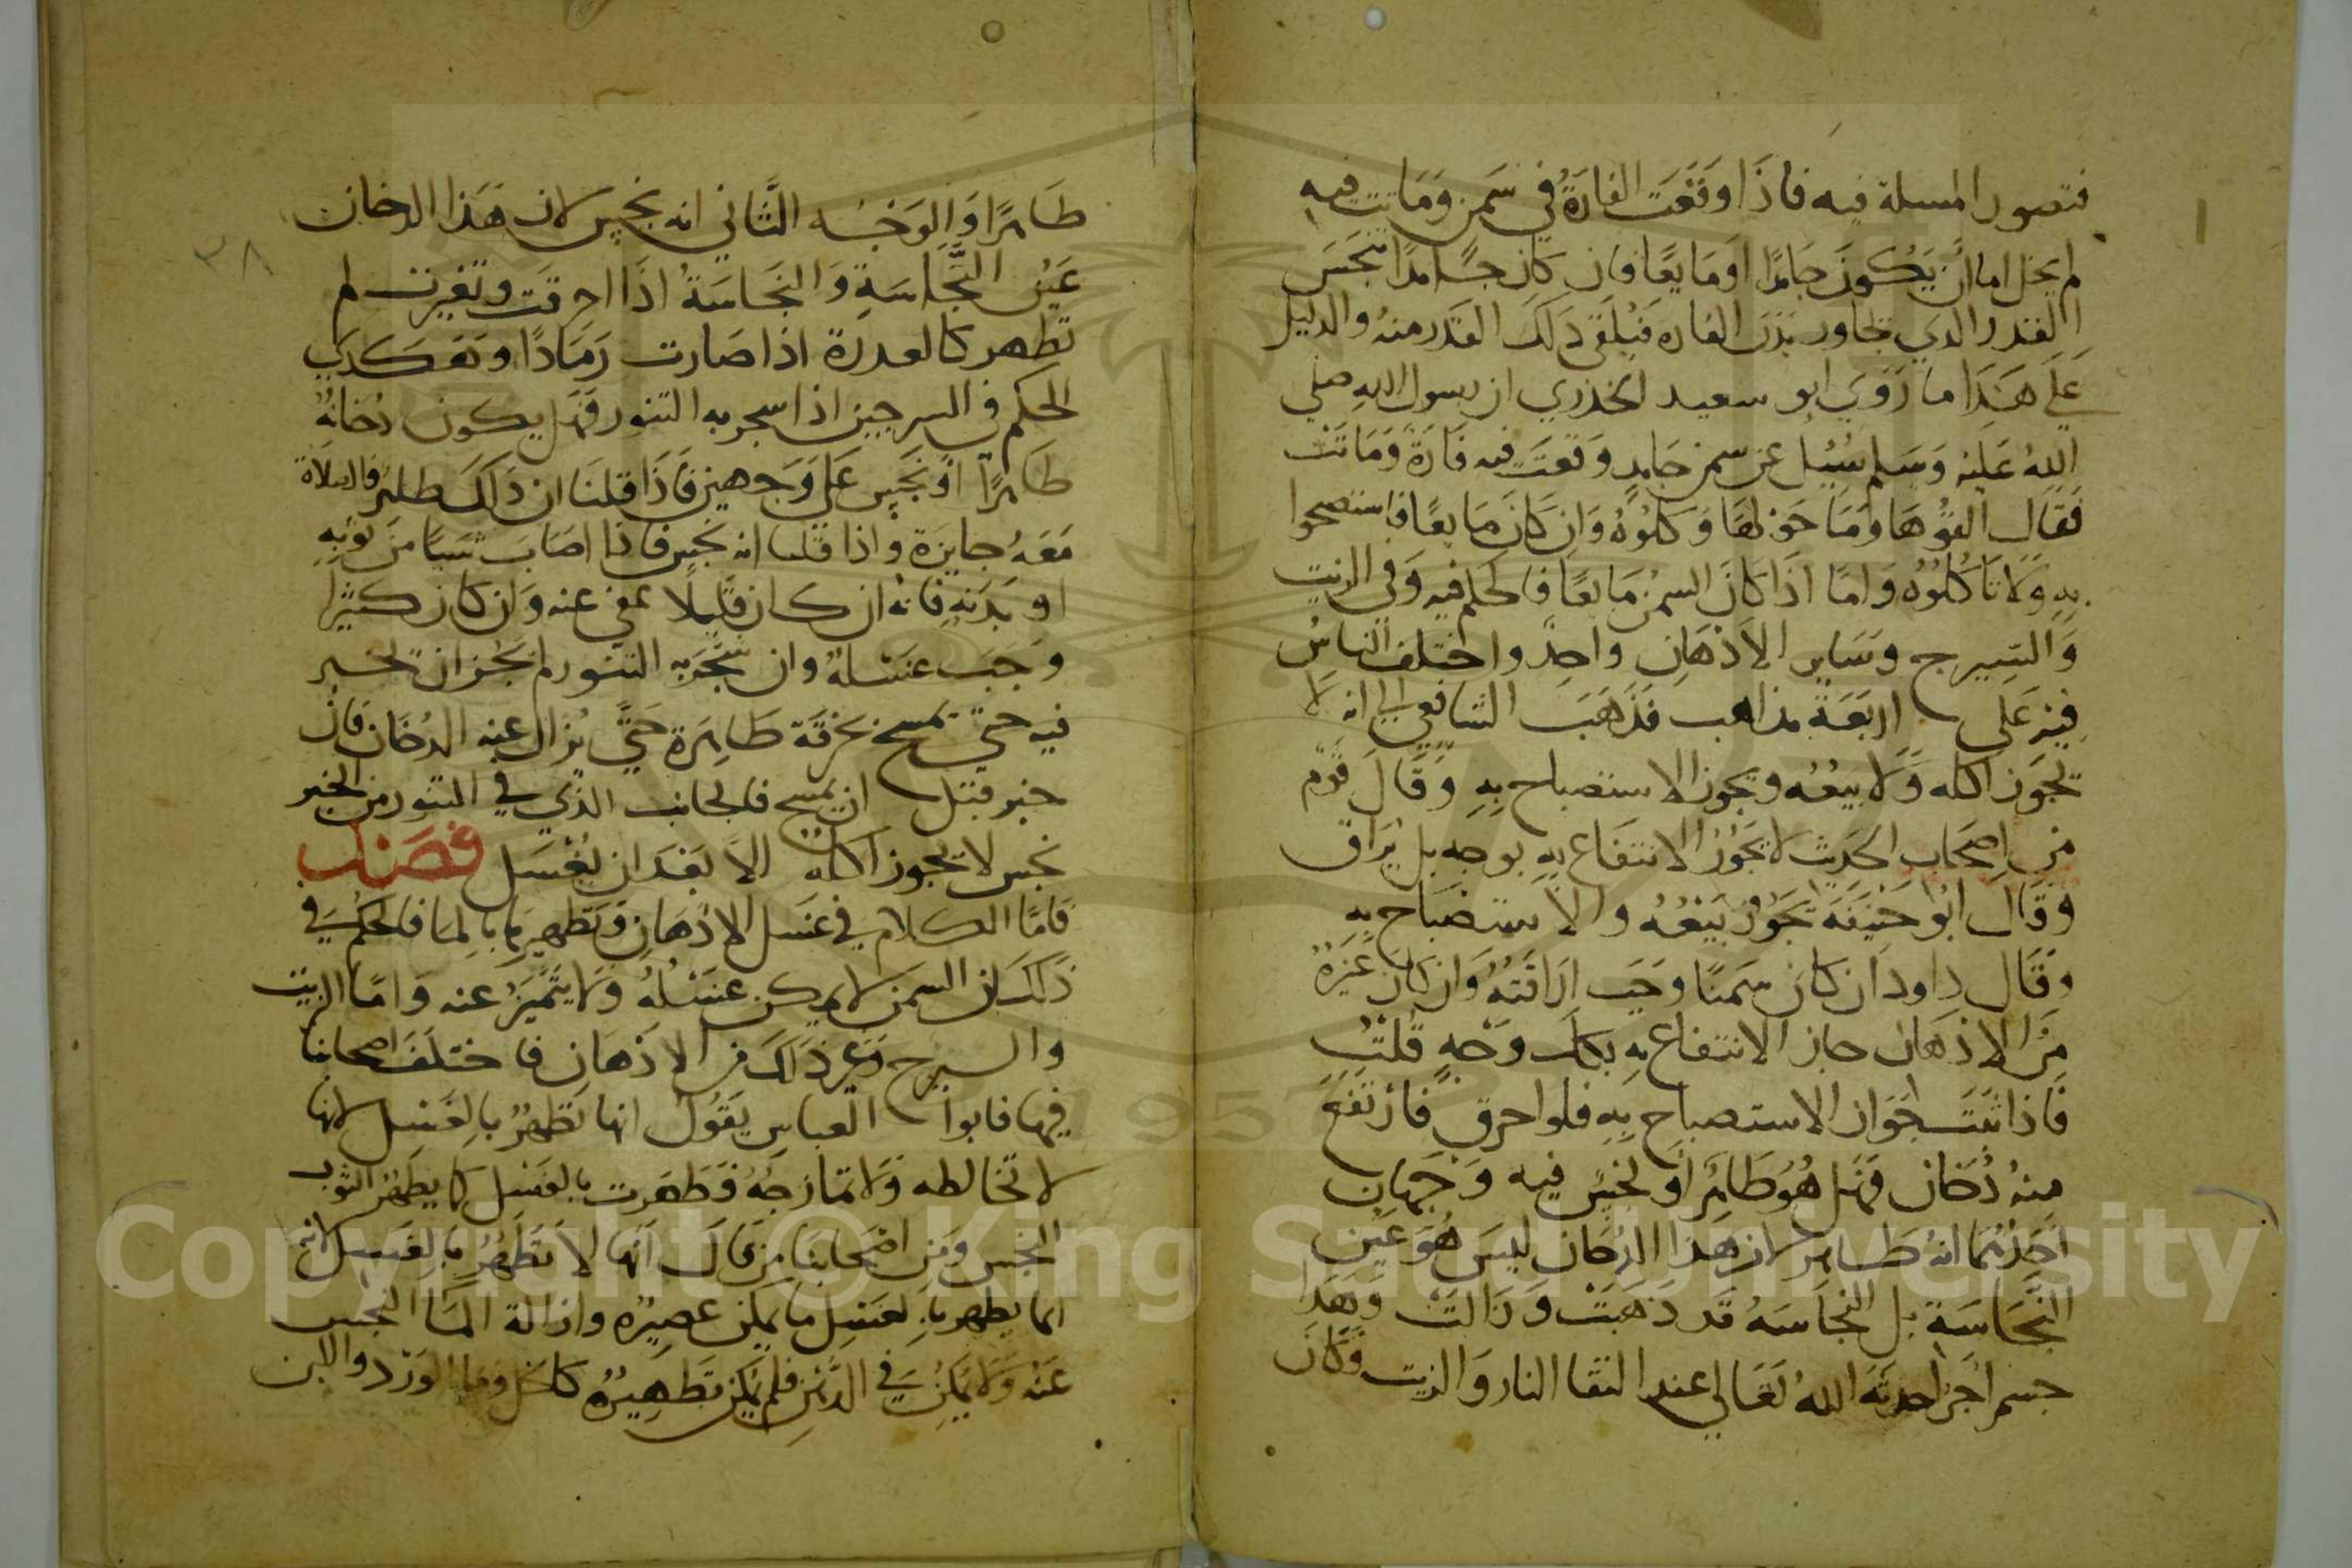 فتصور المسلة فيه فاذا وقعت الفارة في سمن وماتت فيه
لم يخل اما ان يكون جامدا او مايعا فان كان جامدا نجس
القدر الذي جاور بدن الفاره فيلقى ذلك القدر منه والدليل
على هذا ما روى ابو سعيد الخدري ان رسول الله صلى
الله عليه وسلم سئل عن سمن جامد وقعت فيه فارة وماتت
فقال القوها وما حولها وكلوه وان كان مايعا فاستصبحوا
به ولا تاكلوه واما اذا كان السمن مايعا فالحكم فيه وفي الزيت
والشيرج وساير الادهان واحد واختلف الناس
فيه على اربعة مذاهب فذهب الشافعي الى انه لا
يجوز اكله ولا بيعه ويجوز الاستصباح به وقال قوم
من اصحاب الحديث لا يجوز الانتفاع به بوجه بل يراق
وقال ابو حنيفة يجوز بيعه والاستصباح به
وقال داود ان كان سمنا وجب اراقته وان كان غيره
من الادهان جاز الانتفاع به بكل وجه قلت
فاذا ثبت جواز الاستصباح به فلو احرق فارتفع
منه دخان فهل هو طاهر او نجس فيه وجهان
احدهما انه طاهر لان هذا الدخان ليس هو عين
النجاسة بل النجاسه قد ذهبت وزالت وهذا
جسم اخر احدثه الله تعالى عند التقا النار والزيت وكان
٣٨
طاهرا والوجه الثاني انه نجس لان هذا الدخان
عين النجاسة والنجاسة اذا احرقت وتغيرت لم
تطهر كالعدرة اذا صارت رمادا وهكدى
الحكم في السرجين اذا سجر به التنور فهل يكون دخانه
طاهرا او نجس على وجهين فاذا قلنا ان ذلك طاهر فالصلاة
معه جايزة واذا قلنا انه نجس فاذا اصاب شيا من ثوبه
او بدنه فانه ان كان قليلا عفي عنه وان كان كثيرا
وجب غسله وان سجر به التنور لم يجز ان يخبز
فيه حتى يمسح بخرقة طاهرة حتى يزال عنه الدخان فان
خبز قبل ان يمسح فالجانب الذي في التنور من الخبز
نجس لا يجوز اكله الا بعد ان يغسل فصل
فاما الكلام في غسل الادهان وتطهيرها بالما فالحكم في
ذلك ان السمن لا يمكن غسله ولا يتميز عنه واما الزيت
والسيرج وغير ذلك من الادهان فاختلف اصحابنا
فيها فابوا العباس يقول انها تطهر بالغسل لانها
لا تخالطه ولا تمازجه فطهرت بالغسل كما يطهر الثوب
النجس ومن اصحابنا من قال انها لا تطهر بالغسل لانه
انما يطهر بالغسل ما يمكن عصيره وازالة الما النجس
عنه ولا يمكن في الدهن فلم يمكن تطهيره كالخل وما الورد واللبن